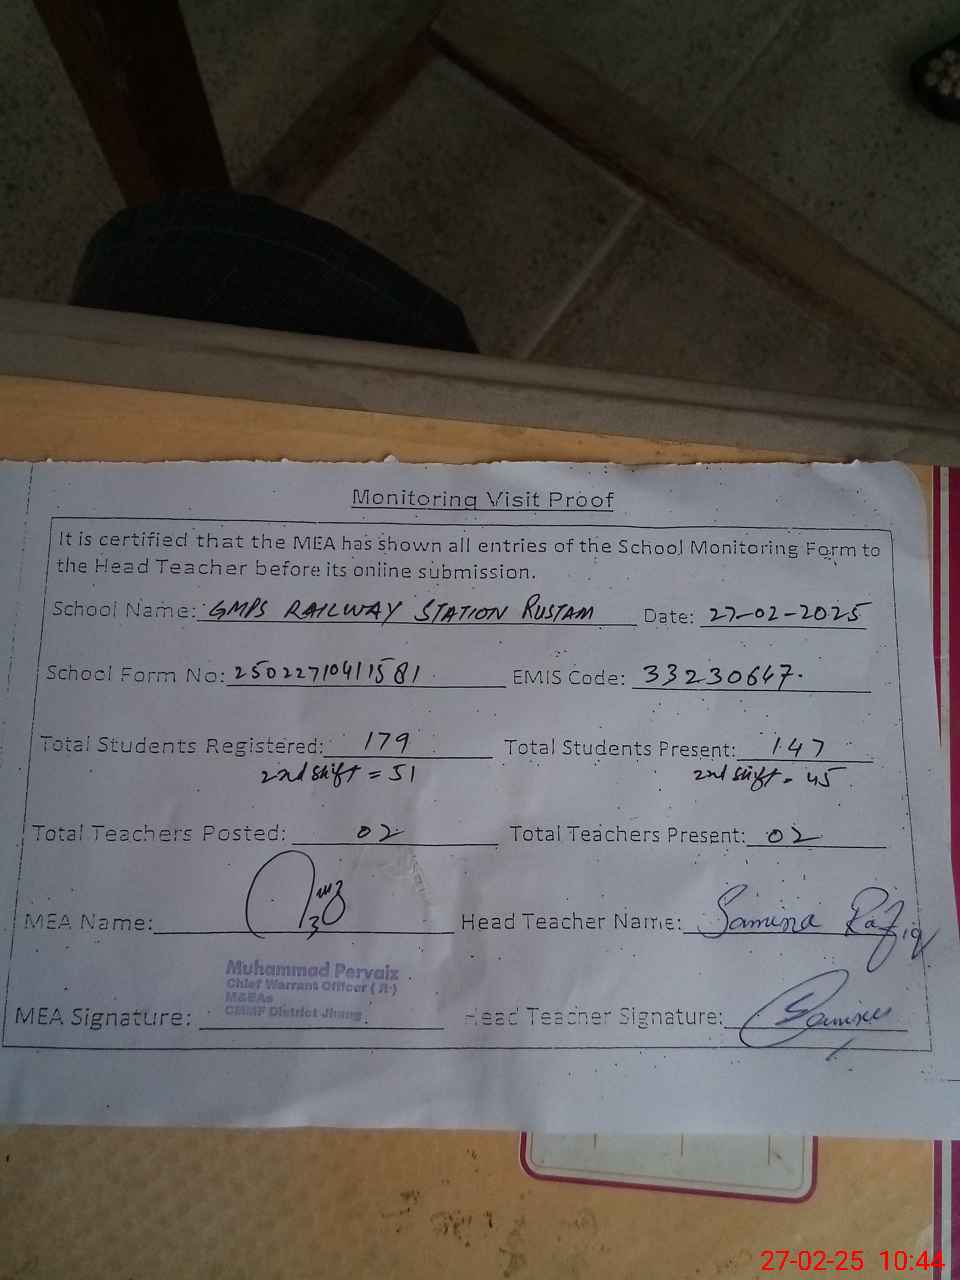 Monitoring Visit Proof
It is certified that the MEA has shown all entries of the School Monitoring Form to
the Head Teacher before its online submission.
School Name: GMPS RAILWAY STATION RUSTAM Date: 27-02-2025
School Form No: 25022710411581 EMIS Code: 33230647.
Total Students Registered: 179 Total Students Present: 147
2nd shift = 51 2nd shift = 45
Total Teachers Posted: 02 Total Teachers Present: 02
MEA Name: Head Teacher Name: Samina Rafiq
Muhammad Pervaiz
Chief Warrant Officer (R)
M&EAs
CMMF District Jhang
MEA Signature: Head Teacher Signature: Samina
27-02-25 10:44